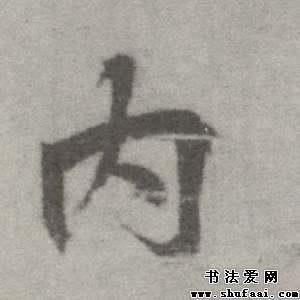 内
书法爱网
www.shufaai.com